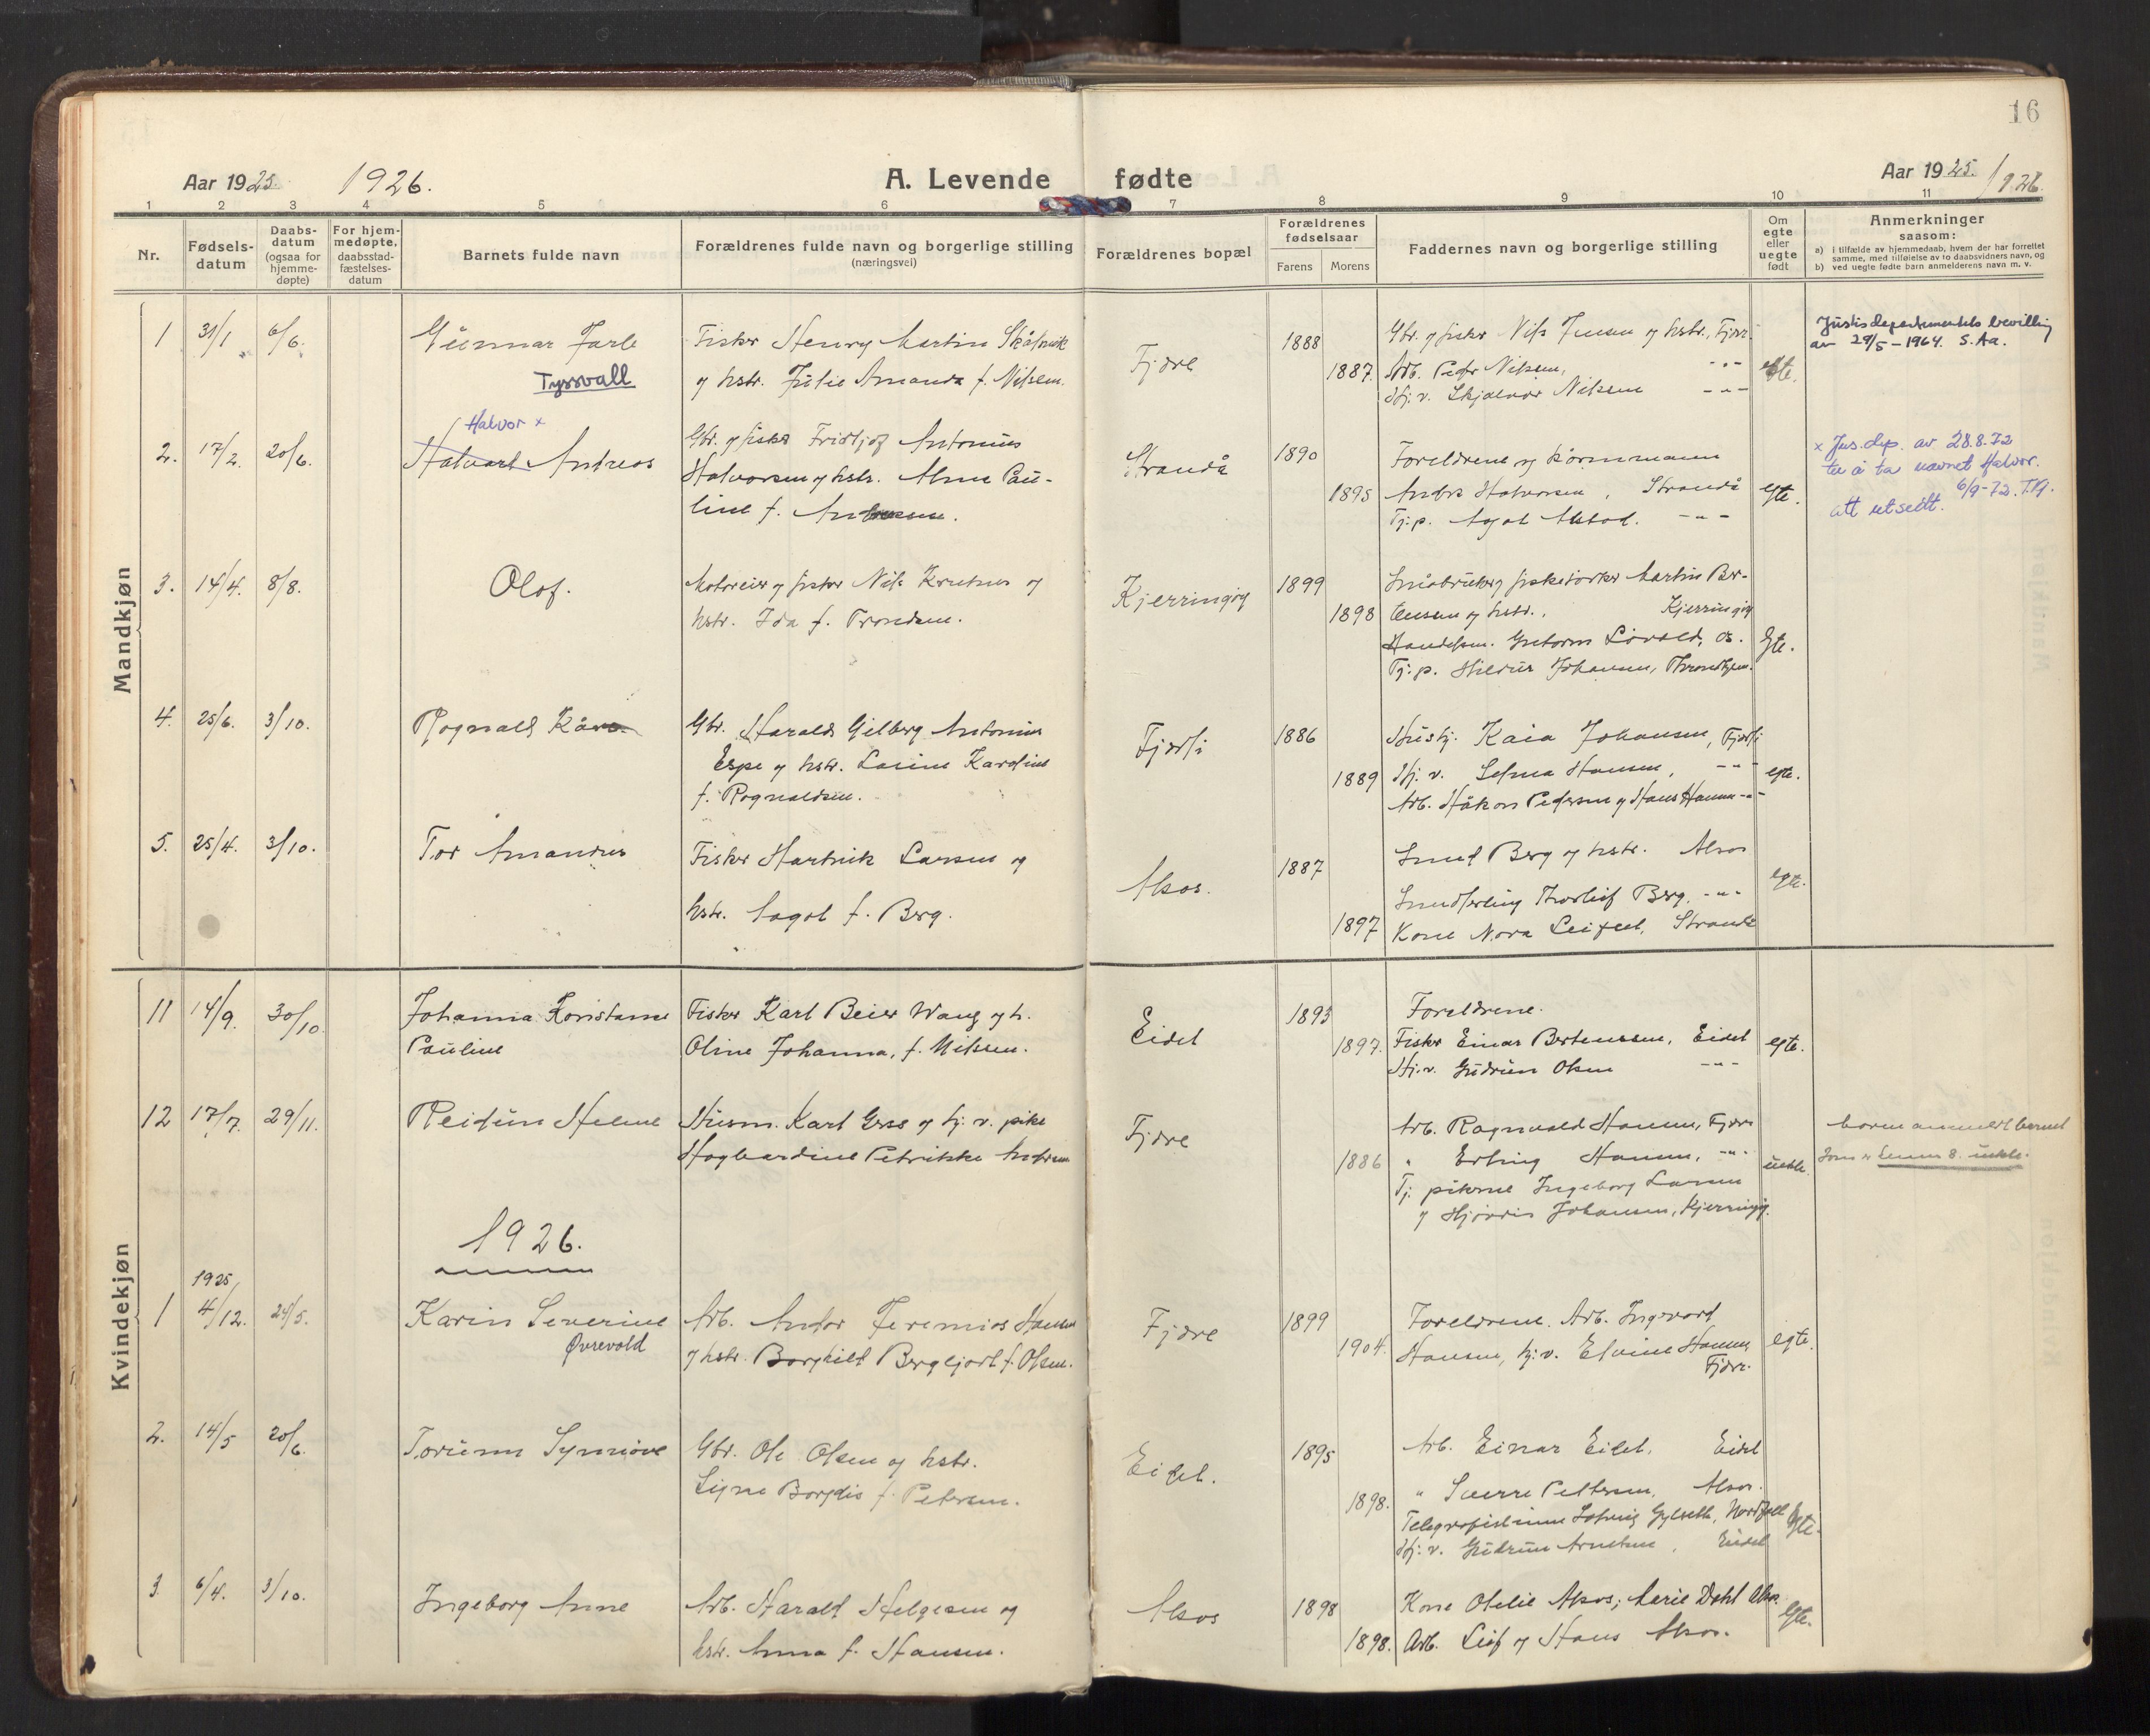 16
Aar 1925. 1926. A. Levende fødte Aar 1925. / 1926.
1 2 3 4 5 6 7 8 9 10 11
Nr. Fødsels-datum Daabs-datum (ogsaa for hjemme-døpte) For hjem-medøpte, daabsstad-fæstelses-datum Barnets fulde navn Forældrenes fulde navn og borgerlige stilling (næringsvei) Forældrenes bopæl Forældrenes fødselsaar Farens Morens Faddernes navn og borgerlige stilling Om egte eller uegte født Anmerkninger saasom:
a) i tilfælde av hjemmedaab, hvem der har forrettet samme, med tilføielse av to daabsvidners navn, og
b) ved uegte fødte barn anmelderens navn m. v.
Mandkjøn
1 31/1 6/6. Gunnar Jarle Fisker Henry Martin Skålsvik Fjære 1888 Gbr. og fisker Nils Jensen og hstr., Fjære Justisdepartementets bevilling
Tyssvall og hstr. Julie Amanda f. Nilsen. 1887. Arb. Peder Nilsen, -"- egte. av 29/5-1964. S.Aa.
Hj. v. Skjalvor Nilsen -"-
Halvor x
2. 17/2. 20/6. Halvart Andreas Gbr. og fisker Fridtjof Antonius Strandå 1890 Foreldrene og kårmann x Jus.dep. av 28.8.72
Halvorsen og hstr. Alma Pau- 1895 Anders Halvorsen, Strandå egte. til å ta navnet Halvor.
line f. Andersen. Tj.p. Agot Alstad. -"- att utsedt. 6/9-72.
3. 14/4. 8/8. Olof. Motoreier og fisker Nils Knutsen og Kjerringøy 1899 Småbruker og fisker Martin Ber-
hstr. Ida f. Trondsen. 1898 tensen og hstr., Kjerringøy
Handelsm. Guttorm Løvold, os. Egte.
Tj.p. Hildur Johansen, Throndhjem.
4. 25/6. 3/10. Rognald Kåre Gbr. Harald Gilberg Antonius Fjærli 1886 Hushj. Kaia Johansen, Fjærli
Espe og hstr. Lovine Karoline 1889 Hj. v. Selma Hansen, -"- egte.
f. Rognaldsen. Arb. Håkon Pedersen og Hans Hansen -"-
5. 25/4. 3/10. Tor Amandus Fisker Hartvik Larsen og Alsos. 1887 Smed Berg og hstr. Alsos
hstr. Aagot f. Berg. Smedlærling Thorleif Berg. -"- egte.
1897 Kone Nora Leifset, Strandå
Kvindekjøn
11 14/9. 30/10 Johanna Konstanse Fisker Karl Beier Wang og h. Eidet 1893 Foreldrene.
Pauline Oline Johanna, f. Nilssen. 1897. Fisker Einar Bertenssen, Eidet egte.
Hj.v. Gudrun Olsen -"-
12 17/7. 29/11. Reidun Helene Husm. Karl Goss og hj. v. pike Fjære Arb. Ragnvald Hansen, Fjære
Hagbardine Petrikke Andersen 1886 " Erling Hansen, -"- uekte.
Tj. pikerne Ingeborg Larsen
og Hjørdis Johansen, Kjerringøy.
1926.
1925
1 4/12. 24/5. Karin Severine Arb. Andor Jeremias Hansen Fjære 1899 Foreldrene. Arb. Ingvard
Øvrevold og hstr. Borghild Bergljort f. Olsen. 1904. Hansen, hj. v. Elvine Hansen, egte.
Fjære.
2. 14/5 20/6. Torunn Synnøve Gbr. Ole Olsen og hstr. Eidet. 1895 Arb. Einar Eidet, Eidet
Signe Borgdis f. Petersen. 1898. " Sverre Pettersen, Alsos.
Telegrafistinne Solveig Gylseth, Nordfold Egte.
Hj. v. Gudrun Arntsen, Eidet
3. 6/4. 3/10. Ingeborg Anne Arb. Harald Helgesen og Alsos 1898 Kone Otelie Alsos; Marie Dahl Alsos. Egte.
hstr. Anna f. Hansen. 1898. Arb. Leif og Hans Alsos.